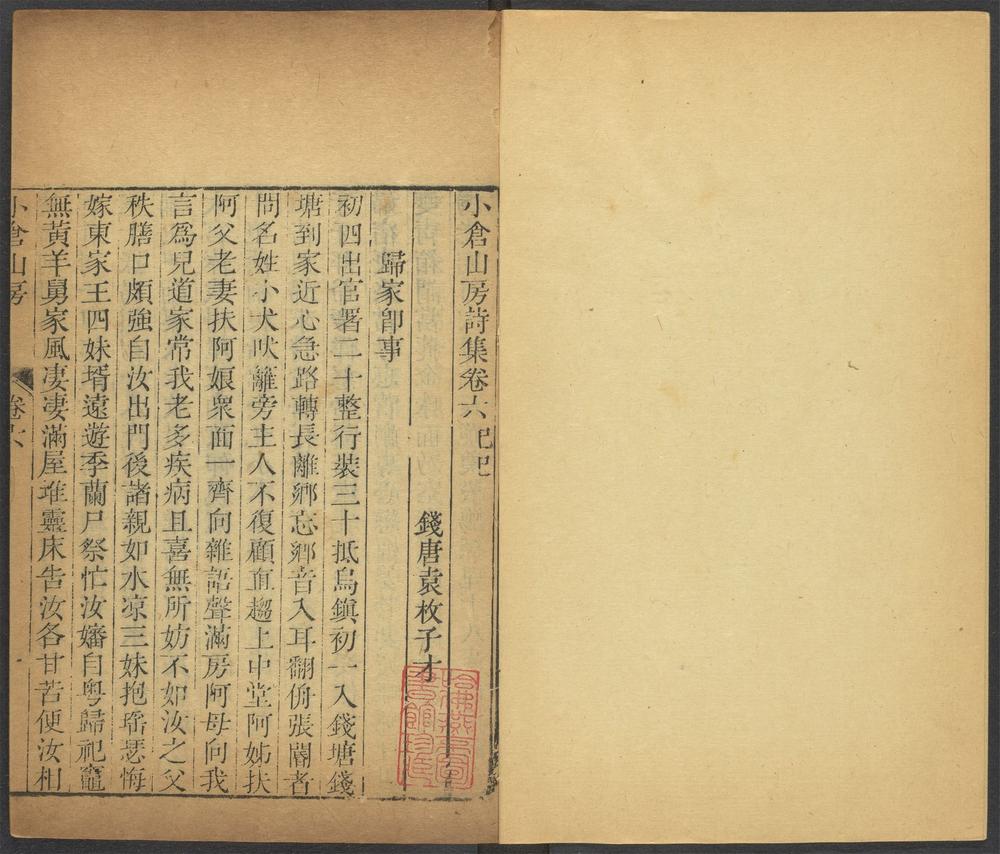 小倉山房詩集卷六 己巳
錢唐袁枚子才
歸家卽事
初四出官署二十整行裝三十抵烏鎭初一入錢塘錢
塘到家近心急路轉長離鄉忘鄉音入耳翻俯張閽者
問名姓小犬吠籬旁主人不復顧直趨上中堂阿姊扶
阿父老妻扶阿娘衆面一齊向雜語聲滿房阿母向我
言爲兒道家常我老多疾病且喜無所妨不如汝之父
秩膳口頗強自汝出門後諸親如水凉三妹抱瑤瑟悔
嫁東家王四妹壻遠遊季蘭尸祭忙汝嬸自粵歸祀竈
無黃羊舅家風凄凄滿屋堆靈床告汝各甘苦便汝相
小倉山房
卷六